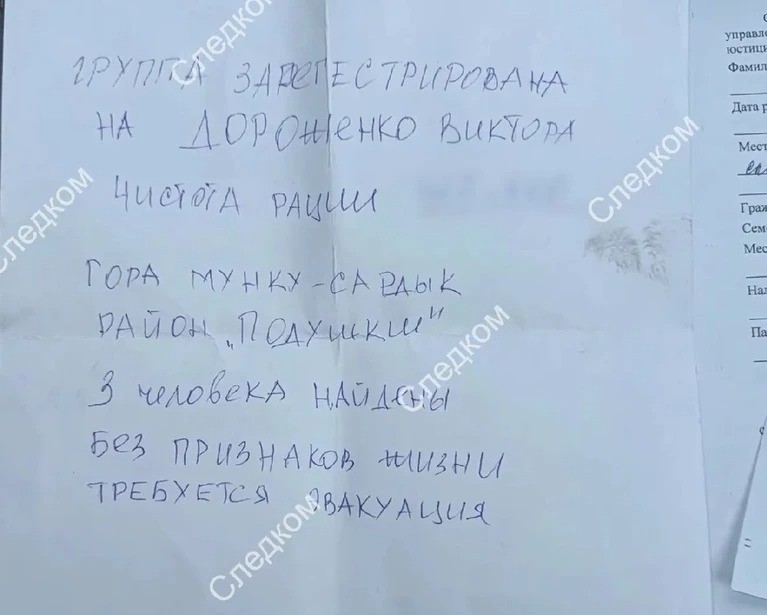 ГРУППА ЗАРЕГЕСТРИРОВАНА
НА ДОРОЖЕНКО ВИКТОРА
ЧИСТОТА РАЦИИ
ГОРА МУНКУ-САРДЫК
РАЙОН „ПОДУШКИ"
3 человека НАЙДЕНЫ
БЕЗ ПРИЗНАКОВ ЖИЗНИ
ТРЕБУЕТСЯ ЭВАКУАЦИЯ
Следком
Следком
Следком
Следком
Следком
управл
юстици
Фамил
Дата р
Мест
Граж
Сем
Мес
На
Па